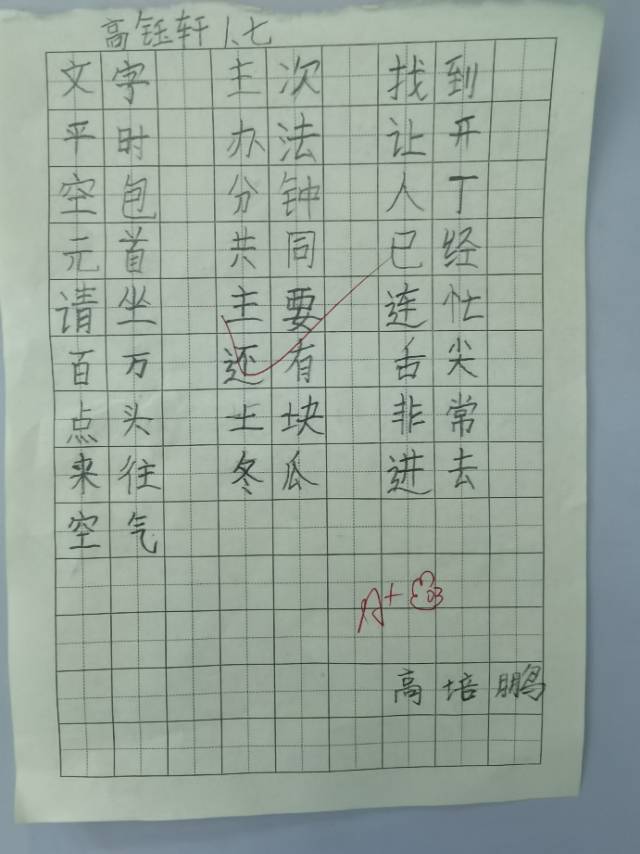 高钰轩 1、七
文字 主次 找到
平时 办法 让开
空包 分钟 人丁
元首 共同 已经
请坐 主要 连忙
百万 还有 舌尖
点头 土块 非常
来往 冬瓜 进去
空气
A+
高培鹏